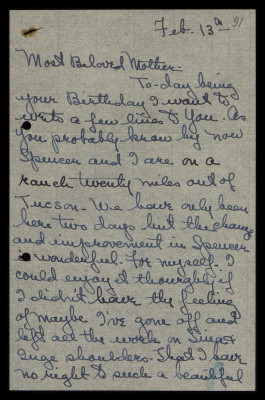 Feb. 13th 31
Most Beloved Mother-
To-day being
your Birthday I want to
write a few lines to You. As
you probably know by now
Spencer and I are on a
ranch twenty miles out of
Tucson. We have only been
here two days but the change
and improvement in Spencer
is wonderful. For myself I
could enjoy it thoroughly if
I didn't have the feeling
of maybe I've gone off and
left all the work on
Inge shoulders. That I have
no right to such a beautiful